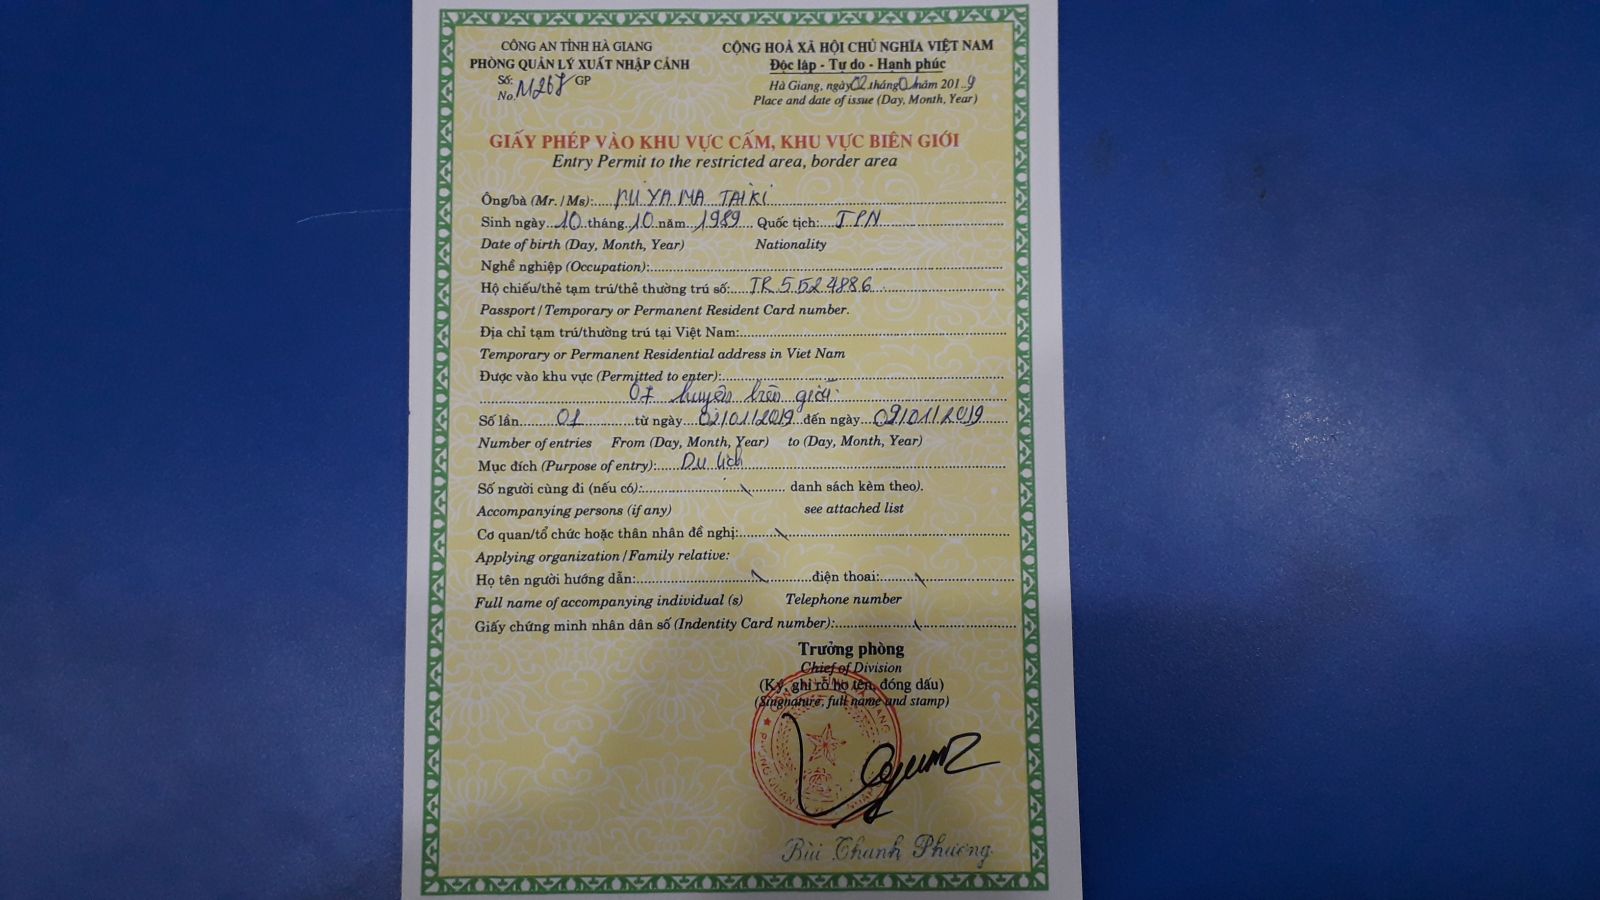 CÔNG AN TỈNH HÀ GIANG
PHÒNG QUẢN LÝ XUẤT NHẬP CẢNH
Số: M267 GP
No.
CỘNG HOÀ XÃ HỘI CHỦ NGHĨA VIỆT NAM
Độc lập - Tự do - Hạnh phúc
Hà Giang, ngày 02 tháng 01 năm 2019
Place and date of issue (Day, Month, Year)
GIẤY PHÉP VÀO KHU VỰC CẤM, KHU VỰC BIÊN GIỚI
Entry Permit to the restricted area, border area
Ông/bà (Mr. / Ms): MIYAMA TAIKI
Sinh ngày 10 tháng 10 năm 1989 Quốc tịch: JPN
Date of birth (Day, Month, Year) Nationality
Nghề nghiệp (Occupation):
Hộ chiếu/thẻ tạm trú/thẻ thường trú số: TR5524886
Passport / Temporary or Permanent Resident Card number.
Địa chỉ tạm trú/thường trú tại Việt Nam:
Temporary or Permanent Residential address in Viet Nam
Được vào khu vực (Permitted to enter):
07 huyện biên giới
Số lần 01 từ ngày 02/01/2019 đến ngày 09/01/2019
Number of entries From (Day, Month, Year) to (Day, Month, Year)
Mục đích (Purpose of entry): Du lịch
Số người cùng đi (nếu có): \ danh sách kèm theo).
Accompanying persons (if any) see attached list
Cơ quan/tổ chức hoặc thân nhân đề nghị: \
Applying organization / Family relative:
Họ tên người hướng dẫn: \ điện thoại: \
Full name of accompanying individual (s) Telephone number
Giấy chứng minh nhân dân số (Indentity Card number): \
Trưởng phòng
Chief of Division
(Ký, ghi rõ họ tên, đóng dấu)
(Singnature, full name and stamp)
Bùi Thanh Phương